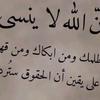 نّ الله لا ينسى
ظلمك ومن ابكاك ومن قهر
على يقين أن الحقوق ستُرد